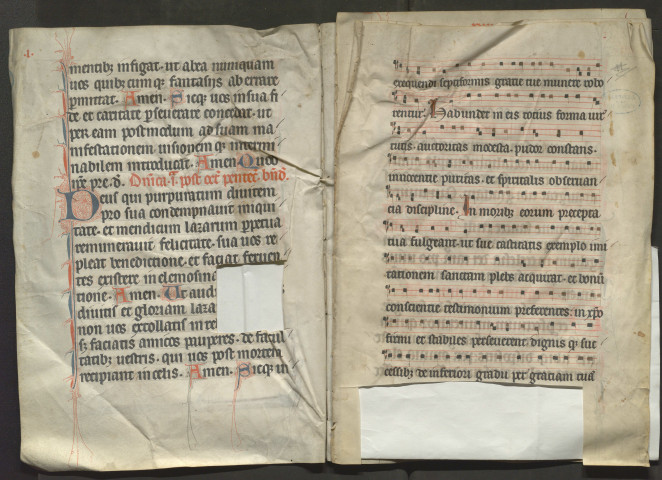 mentibz infigat. ut ab ea nunquam
uos quibzcumq; fantasiis aberrare
permittat. Amen. Sicq; uos in sua fi
de et caritate pseuerare concedat. ut
per eam postmodum ad suam ma
nifestationem uisionem q; intermi
nabilem introducat. Amen. Quod
Deus qui purpuratum diuitem
pro sua contempnauit iniqui
tate. et mendicum lazarum ppetua
remunerauit felicitate. sua uos re
pleat benedictione. et faciat feruen
tes existere in elemosina
tione. Amen. Ut aud
diuitis et gloriam laza
non uos extollatis in re
sz faciatis amicos pauperes. de facul
tatibz uestris. qui uos post mortem
recipiant in celis. Amen. Sicq; in
exequendi septiformis gratie tue munere robo
rentur. Habundet in eis totius forma uir
tutis. auctoritas modesta. pudor constans.
innocentie puritas. et spiritalis obseruan
tia discipline. In moribz eorum precepta
tua fulgeant. ut sue castitatis exemplo imi
tationem sanctam plebs acquirat. et bonum
conscientie testimonium preferentes. in xpo
firmi et stabiles perseuerent. dignis q; suc
cessibz de inferiori gradu per gratiam tuam